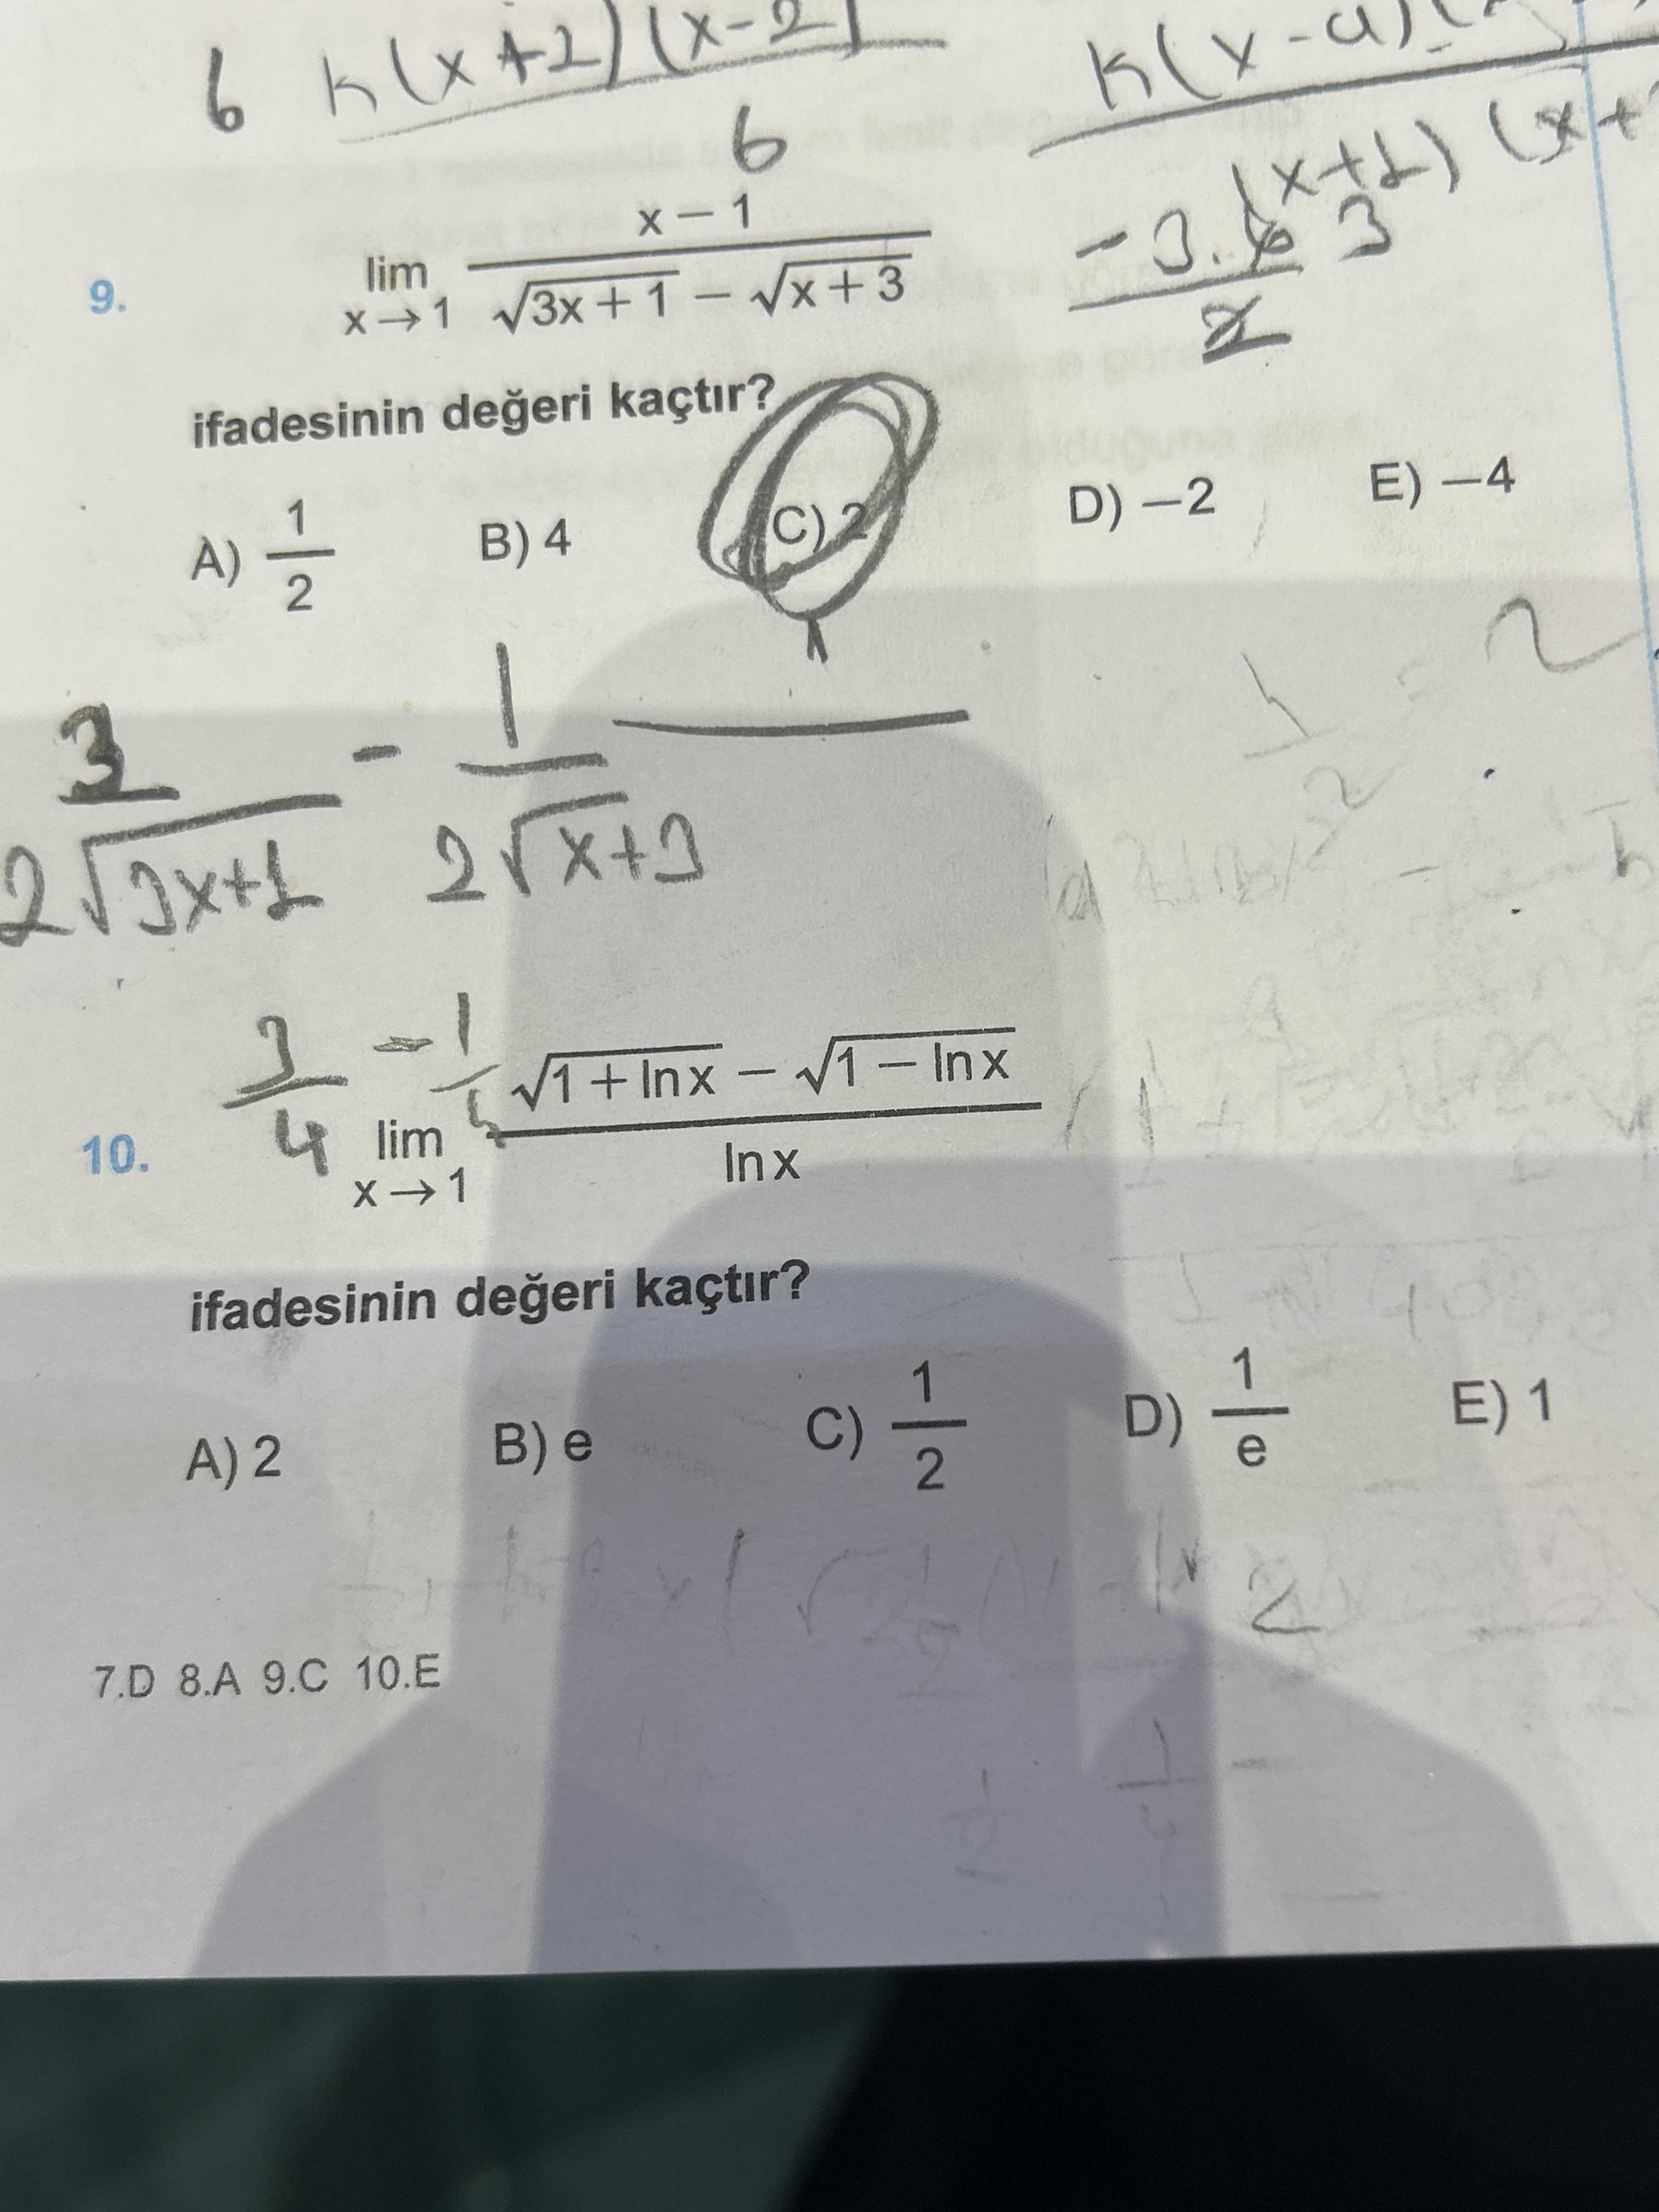 6 k(x+2)(x-2)
6
k(x-a)
(x+1)(x+
-3.6 3
2
9. lim x→1 (x − 1)/(√(3x + 1) − √(x + 3))
ifadesinin değeri kaçtır?
A) 1/2 B) 4 C) 2 D) −2 E) −4
1/(1/2) = 2
3/(2√(3x+1)) - 1/(2√(x+3))
3/4 - 1/4
10. lim x→1 (√(1 + lnx) − √(1 − lnx))/lnx
ifadesinin değeri kaçtır?
A) 2 B) e C) 1/2 D) 1/e E) 1
7.D 8.A 9.C 10.E